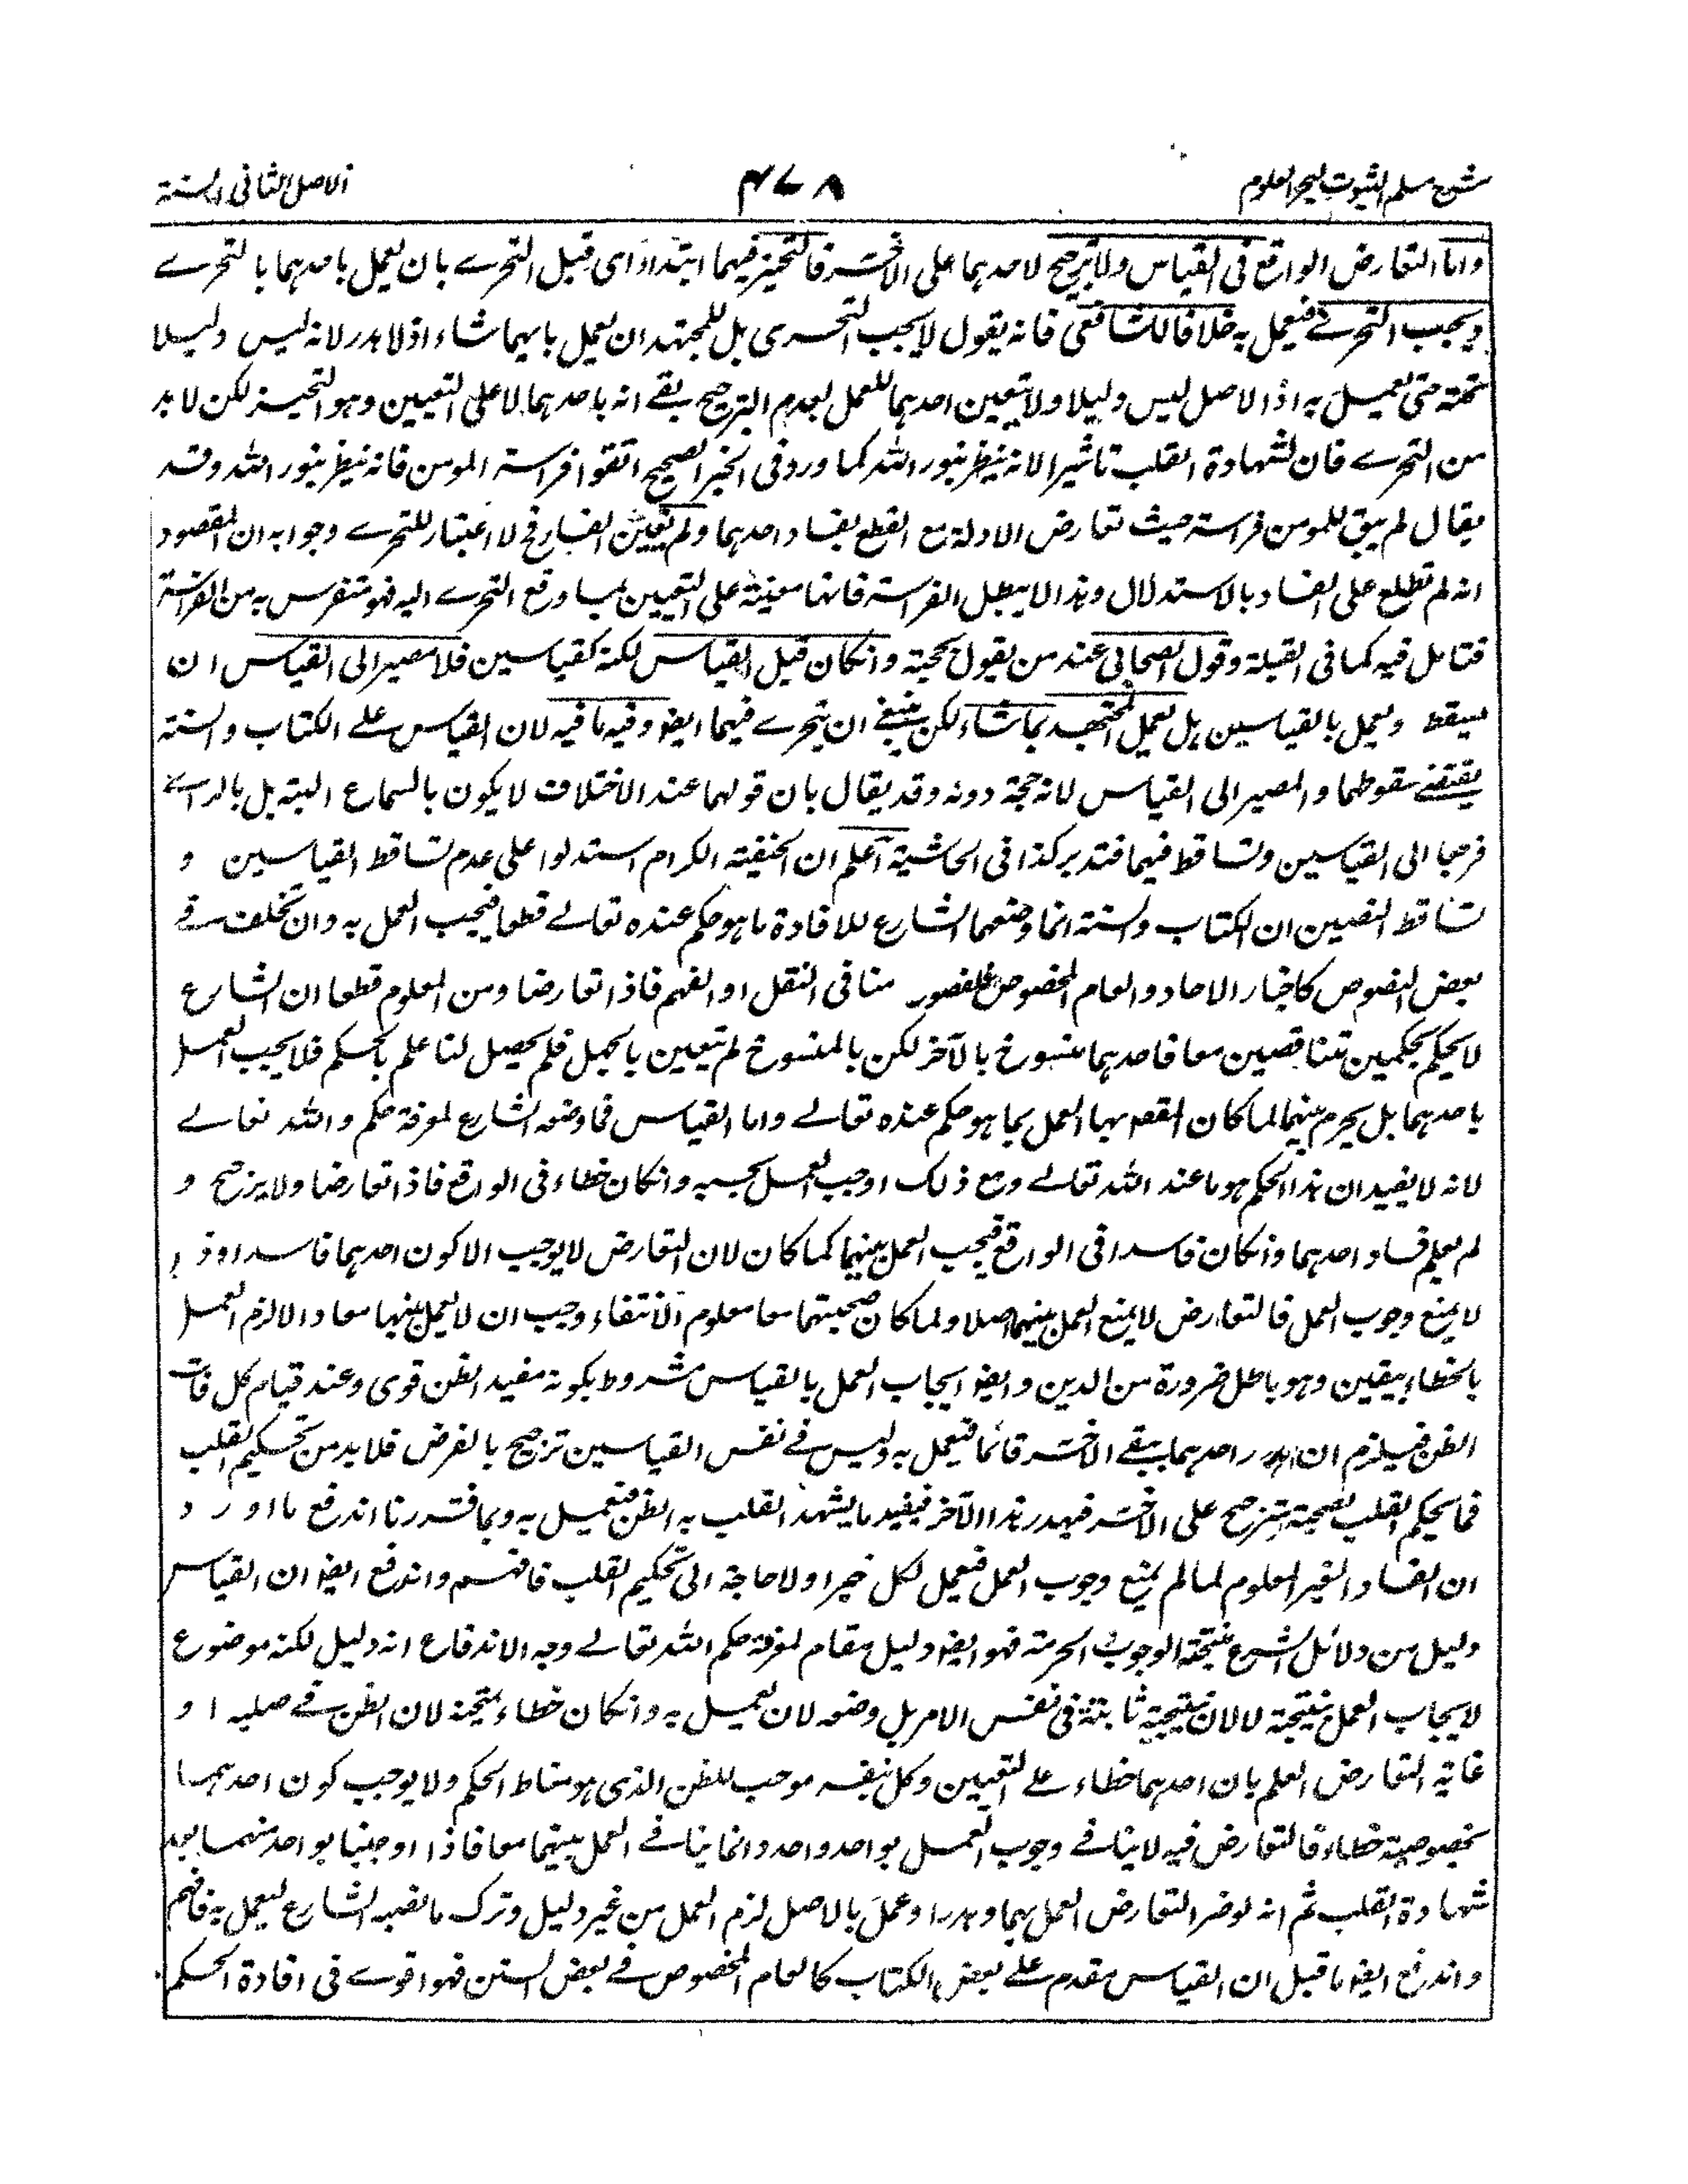 شرح مسلم الثبوت لبحر العلوم
٤٧٨
الاصل الثانى السنة
واما التعارض الواقع فى القياس ولا ترجيح لاحدهما على الآخر فالتخيير فيهما ابتداء اى قبل التحرى بان يعمل باحدهما بالتحرى
ويجب التحرى فيعمل به خلافا للشافعى فانه يقول لا يجب التحرى بل للمجتهد ان يعمل بايهما شاء اذ لا هدر لانه ليس دليلا
تحته حتى يعمل به اذ الاصل ليس دليلا ولا يتعين احدهما للعمل لعدم الترجيح بقى انه باحدهما لا على التعيين وهو التخيير لكن لا بد
من التحرى فان لشهادة القلب تاثيرا لانه ينظر بنور الله كما ورد فى الخبر الصحيح اتقوا فراسة المومن فانه ينظر بنور الله وقد
يقال لم يبق للمومن فراسة حيث تعارض الادلة مع القطع بفساد احدهما ولم يتعين الفساد فح لا اعتبار للتحرى وجوابه ان المقصود
انه لم تطلع على الفساد بالاستدلال وهذا لا يبطل الفراسة فانها معينة على التعيين لما وقع التحرى اليه فهو متفرس به من الفراسة
فتامل فيه كما فى القبلة وقول الصحابى عند من يقول بحجيته وانكان قبل القياس لكنه كقياسين فلا مصير الى القياس ان
سيقط ويعمل بالقياسين بل يعمل المجتهد بما شاء لكن ينبغى ان يتحرى فيهما ايضا وفيه ما فيه لان القياس على الكتاب والسنة
يقتضى سقوطهما والمصير الى القياس لانه حجة دونه وقد يقال بان قولهما عند الاختلاف لا يكون بالسماع البتة بل بالراى
فرجعا الى القياسين وتساقط فيهما فتدبر كذا فى الحاشية اعلم ان الحنفية الكرام استدلوا على عدم تساقط القياسين و
تساقط النصين ان الكتاب والسنة انما وضعهما الشارع للافادة ما هو حكم عنده تعالى قطعا فيجب العمل به وان تخلف فى
بعض النصوص كاخبار الاحاد والعام المخصوص فلقصور منا فى النقل او الفهم فاذا تعارضا ومن المعلوم قطعا ان الشارع
لا يحكم بحكمين متناقضين معا فاحدهما منسوخ بالآخر لكن بالمنسوخ لم يتعين بالجهل فلم يحصل لنا علم بالحكم فلا يجب العمل
باحدهما بل يحرم بينهما لما كان المقصود بهما العمل بما هو حكم عنده تعالى واما القياس فما وضعه الشارع لمعرفة حكم والله تعالى
لانه لا يفيد ان هذا الحكم هو ما عند الله تعالى ومع ذلك اوجب العمل بحسبه وانكان خطاء فى الواقع فاذا تعارضا ولا يرجح و
لم يعلم فساد احدهما وانكان فاسدا فى الواقع فيجب العمل بينهما كما كان لان التعارض لا يوجب الا كون احدهما فاسدا وذا
لا يمنع وجوب العمل فالتعارض لا يمنع العمل بينهما اصلا ولما كان صحيتهما معا معلوم الانتفاء وجب ان لا يعمل بينهما معا والا لزم العمل
بالخطاء بيقين وهو باطل ضرورة من الدين وايضا ايجاب العمل بالقياس مشروط بكونه مفيد الظن قوى وعند قيام كل فات
الظن فيلزم ان اهدر احدهما يبقى الآخر قائما فيعمل به وليس فى نفس القياسين ترجيح بالفرض فلا بد من تحكيم القلب
فما يحكم القلب بصحيته يترجح على الآخر فيهدر هذا الآخر فيفيد ما يشهد القلب به الظن فيعمل به وبما قررنا اندفع ما اورد
ان الفساد الغير المعلوم لما لم يمنع وجوب العمل فيعمل لكل خيرا ولا حاجة الى تحكيم القلب فافهم واندفع ايضا ان القياس
دليل من دلائل الشرع نتيجته الوجوب الحرمة فهو ايضا دليل مقام لمعرفة حكم الله تعالى وجه الاندفاع انه دليل لكنه موضوع
لايجاب العمل بنتيجته لا لان نتيجته ثابتة فى نفس الامر بل وضعه لان يعمل به وانكان خطاء بنتيجته لان الظن فى صلبه او
غاية التعارض العلم بان احدهما خطاء على التعيين وكل بنفسه موجب للظن الذى هو مناط الحكم ولا يوجب كون احدهما
بخصوصيته خطاء فالتعارض فيه لا ينافى وجوب العمل بواحد واحد وانما ينافى العمل بينهما معا فاذا اوجبنا بواحد منهما بعد
شهادة القلب ثم انه لو ضر التعارض العمل بهما وهدرا وعمل بالاصل لزم العمل من غير دليل وترك ما نصبه الشارع ليعمل به فافهم
واندفع ايضا ما قيل ان القياس مقدم على بعض الكتاب كالعام المخصوص فى بعض السنن فهو اقوى فى افادة الحكم